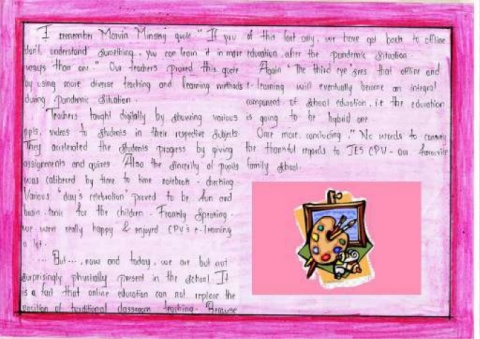 I remember Marvin Minsky quote " If you
don't understand something, you can learn it in more
ways than one." Our teachers proved this quote
by using more diverse teaching and learning methods
during pandemic situation.
Teachers taught digitally by showing various
ppts, videos to students in their respective subjects.
They accelerated the students progress by giving
assignments and quizes. Also the sincerity of pupils
was calibered by time to time notebook - checking
Various "day's celebration" proved to be fun and
brain tonic for the children. Frankly speaking
we were really happy & enjoyed CPV's e-learning
a lot.
... But ..., now and today, we are but not
surprisingly physically present in the school. It
is a fact that online education can not replace the
position of traditional classroom teaching. Because
of this fact only, we have got back to offline
education after the pandemic situation.
Again " The third eye sees that offline and
e-learning will eventually become an integral
component of school education, i.e the education
is going to be hybrid one
Once more, concluding " No words to convey
the thankful regards to IES CPV - Our favourite
family school.